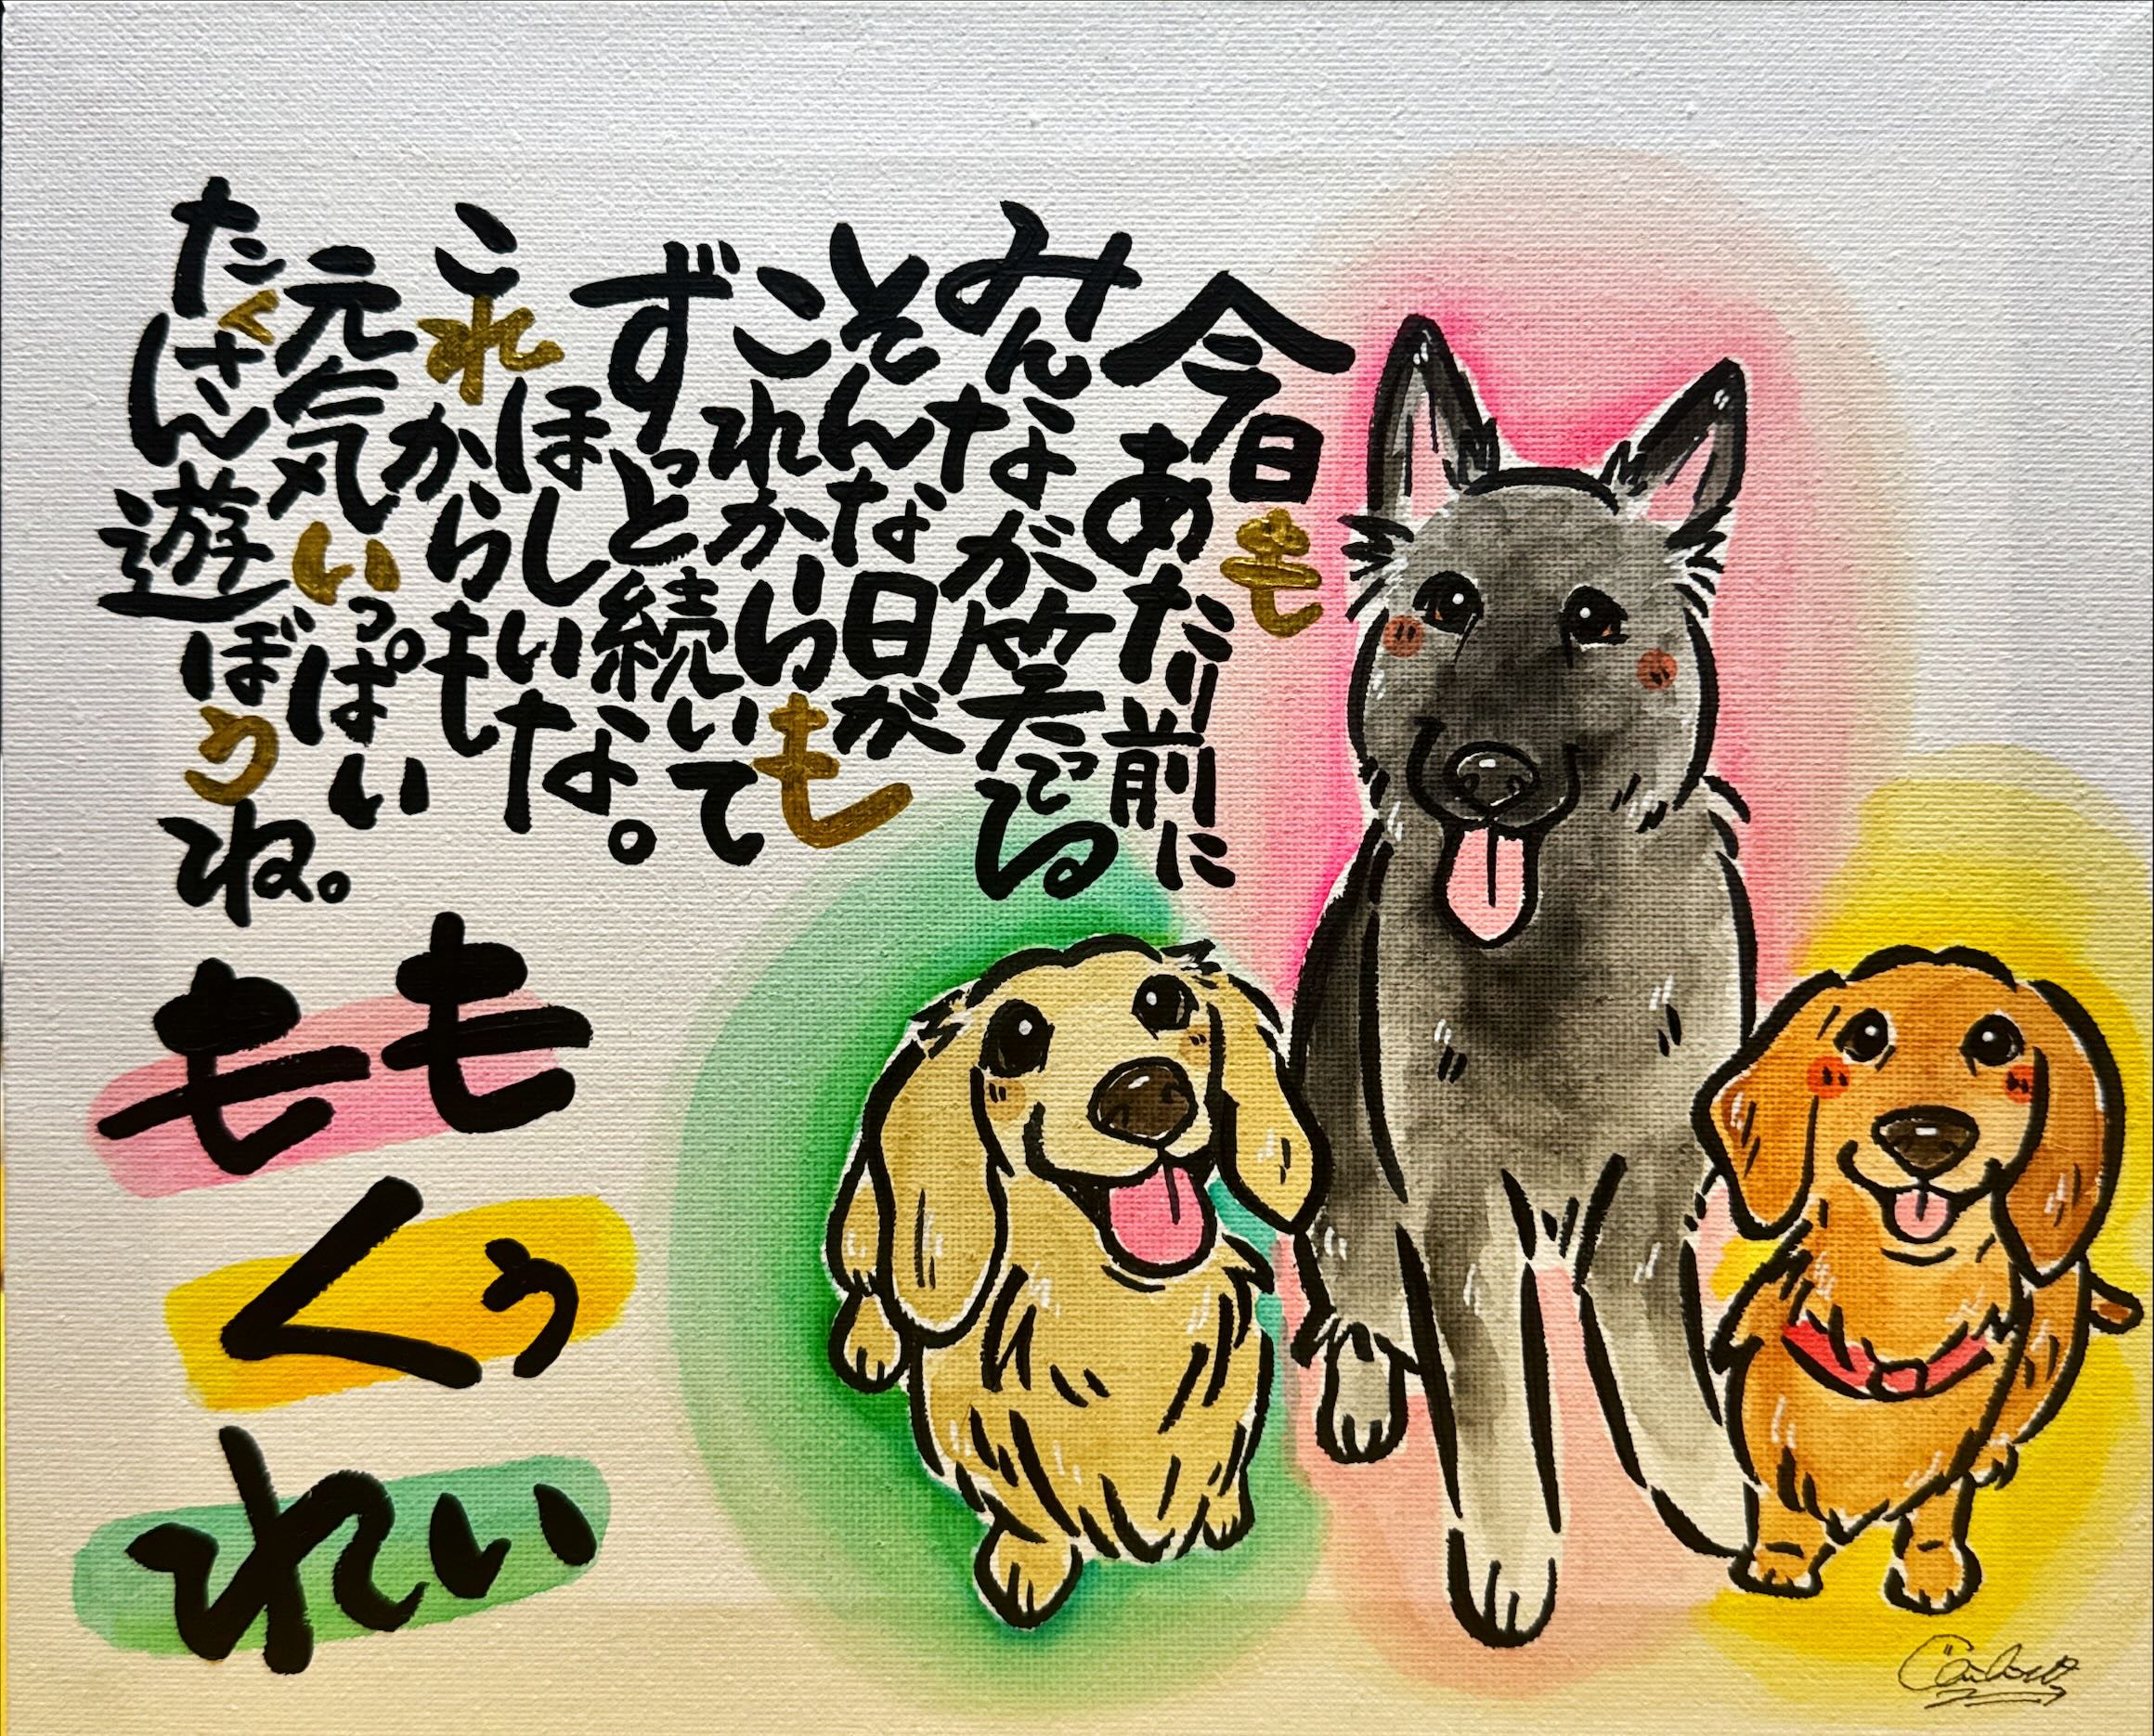 今日も
あたり前に
みんなが笑ってる
そんな日が
これからも
ずっと続いて
ほしいな。
これからも
元気いっぱい
たくさん遊ぼうね。
もも
くぅ
れい